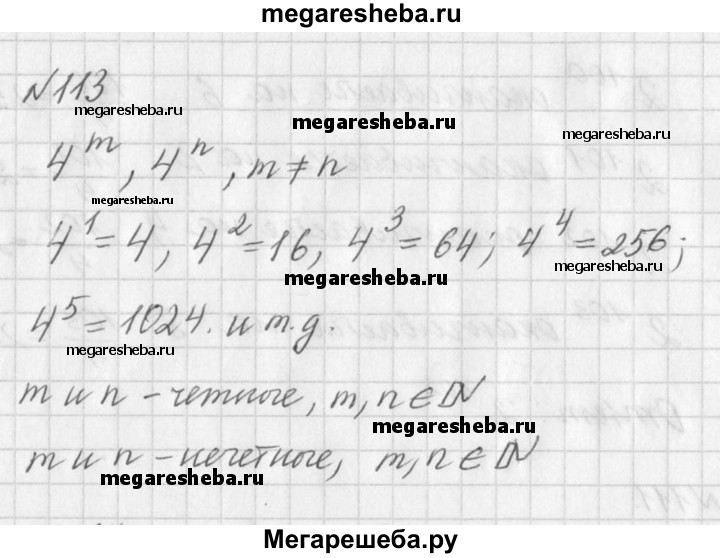 megaresheba.ru
№113
megaresheba.ru
megaresheba.ru
megaresheba.ru
4^m, 4^n, m ≠ n
megaresheba.ru
4^1 = 4, 4^2 = 16, 4^3 = 64; 4^4 = 256;
megaresheba.ru
megaresheba.ru
4^5 = 1024. и т.д.
megaresheba.ru
m и n - четные, m, n ∈ N
megaresheba.ru
m и n - нечетные, m, n ∈ N
megaresheba.ru
Мегарешеба.ру